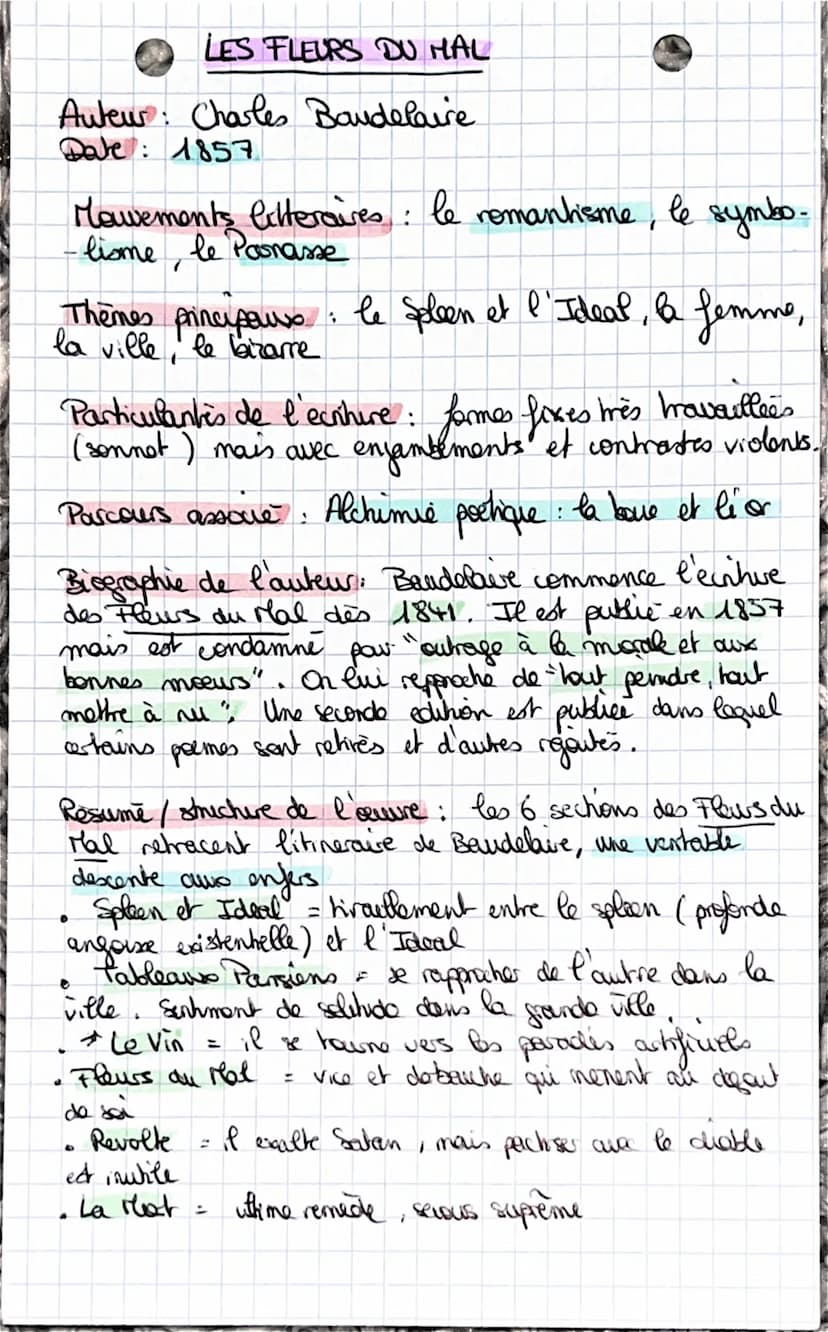 LES FLEURS DU MAL
Auteur : Charles Baudelaire
Date : 1857
Mouvements litteraires : le romantisme, le symbo-
-lisme, le Parnasse
Thèmes principaux : le Spleen et l'Ideal, la femme,
la ville, le bizarre
Particularités de l'ecriture : formes fixes très travaillées
(sonnet) mais avec enjambements et contrastes violents.
Parcours associé : Alchimie poétique : la boue et l'or
Biographie de l'auteur : Baudelaire commence l'ecriture
des Fleurs du Mal dès 1841. Il est publié en 1857
mais est condamné pour "outrage à la morale et aux
bonnes moeurs". On lui reproche de "tout peindre, tout
mettre à nu". Une seconde édition est publiée dans laquel
certains poemes sont retirés et d'autres rajoutés.
Résumé / structure de l'œuvre : les 6 sections des Fleurs du
Mal retracent l'itineraire de Baudelaire, une veritable
descente aux enfers
• Spleen et Ideal = tiraillement entre le spleen (profonde
angoisse existentielle) et l'Ideal
• Tableaux Parisiens = se rapprocher de l'autre dans la
ville. Sentiment de solitude dans la grande ville.
• * Le Vin = il se tourne vers les paradis artificiels
• Fleurs du Mal = vice et debauche qui menent au degout
de soi
• Revolte = il exalte Satan, mais pactiser avec le diable
est inutile
• La Mort = ultime remède, secours suprême